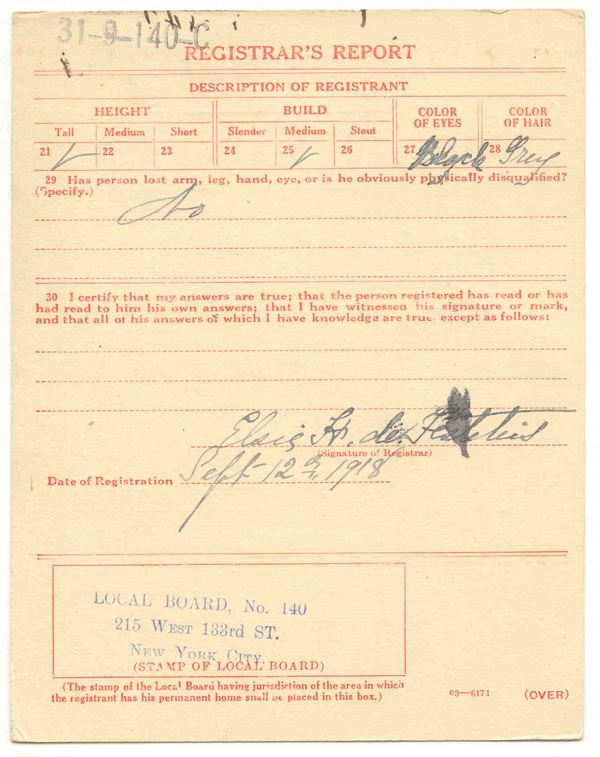 31-9-140-C
REGISTRAR'S REPORT
DESCRIPTION OF REGISTRANT
HEIGHT BUILD COLOR OF EYES COLOR OF HAIR
Tall Medium Short Slender Medium Stout
21 ✓ 22 23 24 25 ✓ 26 27 Black 28 Grey
29 Has person lost arm, leg, hand, eye, or is he obviously physically disqualified?
(Specify.)
No
30 I certify that my answers are true; that the person registered has read or has
had read to him his own answers; that I have witnessed his signature or mark,
and that all of his answers of which I have knowledge are true, except as follows:
Elsie H. de
(Signature of Registrar)
Date of Registration Sept 12 1918
LOCAL BOARD, No. 140
215 WEST 133rd ST.
NEW YORK CITY
(STAMP OF LOCAL BOARD)
(The stamp of the Local Board having jurisdiction of the area in which
the registrant has his permanent home shall be placed in this box.)
03—6171 (OVER)